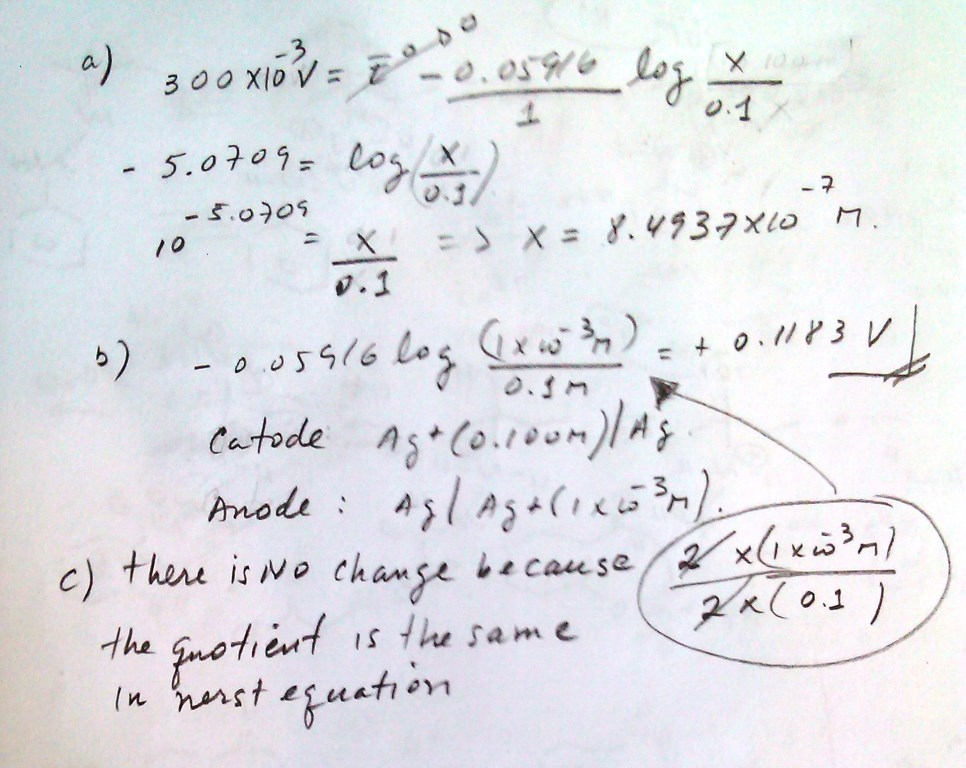 a) 300 x10⁻³V = E° ⁰ - 0.05916/1 log x/0.1
- 5.0709 = log(x/0.1)
10^-5.0709 = x/0.1 => x = 8.4937x10⁻⁷ M.
b) - 0.05916 log (1x10⁻³M)/0.1M = + 0.1183 V
Catode Ag+(0.100M)|Ag.
Anode : Ag| Ag+(1x10⁻³M).
c) there is NO change because
the quotient is the same
in nerst equation
2 x(1x10⁻³M)/2x(0.1)